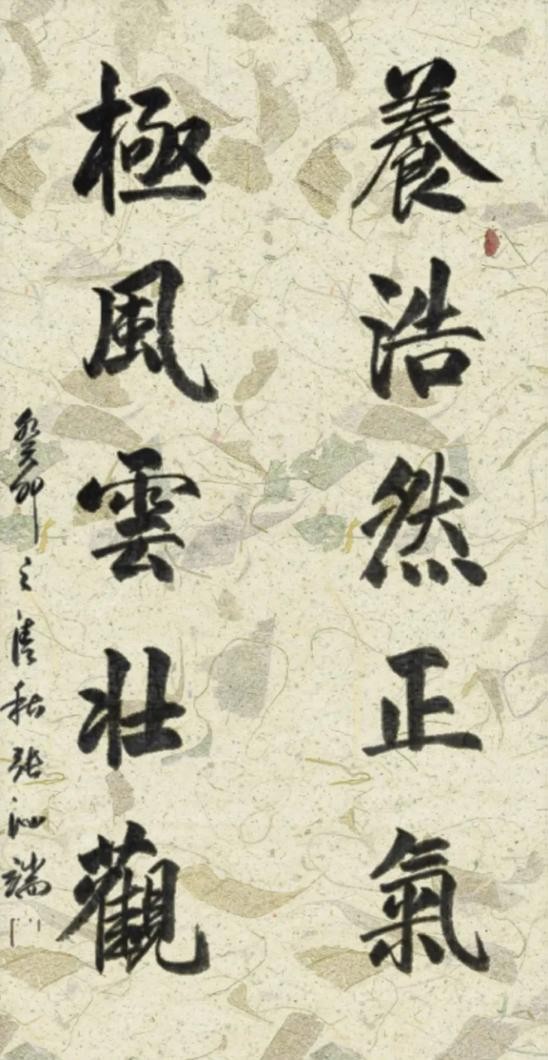 養浩然正氣
極風雲壯觀
癸卯之清秋張沁端